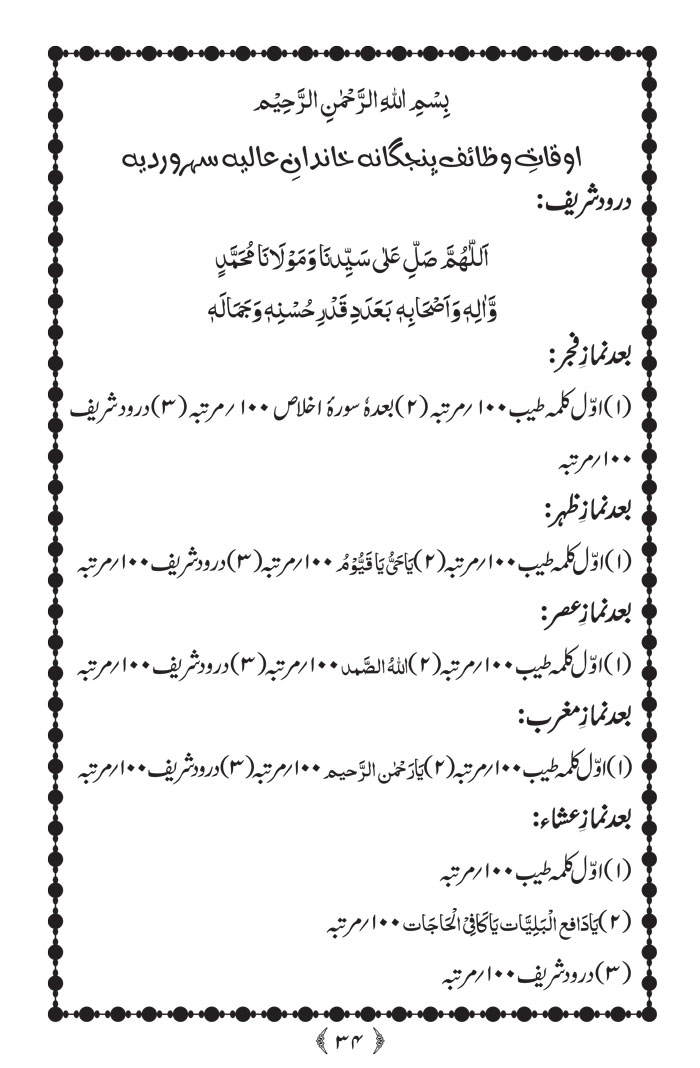 بِسْمِ اللهِ الرَّحْمٰنِ الرَّحِيْمِ
اوقاتِ وظائف پنجگانہ خاندانِ عالیہ سہروردیہ
درود شریف:
اَللّٰهُمَّ صَلِّ عَلٰى سَيِّدِنَا وَمَوْلَانَا مُحَمَّدٍ
وَّاٰلِهٖ وَاَصْحَابِهٖ بَعَدَدِ قَدْرِ حُسْنِهٖ وَجَمَالَهٖ
بعد نمازِ فجر:
(۱) اوّل کلمہ طیب ۱۰۰؍مرتبہ (۲) بعدہٗ سورۂ اخلاص ۱۰۰؍مرتبہ (۳) درود شریف
۱۰۰؍مرتبہ
بعد نمازِ ظہر:
(۱) اوّل کلمہ طیب ۱۰۰؍مرتبہ (۲) يَاحَيُّ يَا قَيُّوْمُ ۱۰۰؍مرتبہ (۳) درود شریف ۱۰۰؍مرتبہ
بعد نمازِ عصر:
(۱) اوّل کلمہ طیب ۱۰۰؍مرتبہ (۲) اللهُ الصَّمد ۱۰۰؍مرتبہ (۳) درود شریف ۱۰۰؍مرتبہ
بعد نمازِ مغرب:
(۱) اوّل کلمہ طیب ۱۰۰؍مرتبہ (۲) يَارَحْمٰن الرَّحيم ۱۰۰؍مرتبہ (۳) درود شریف ۱۰۰؍مرتبہ
بعد نمازِ عشاء:
(۱) اوّل کلمہ طیب ۱۰۰؍مرتبہ
(۲) يَادَافع الْبَلِيَّات يَاكَافِيْ الْحَاجَات ۱۰۰؍مرتبہ
(۳) درود شریف ۱۰۰؍مرتبہ
۳۴